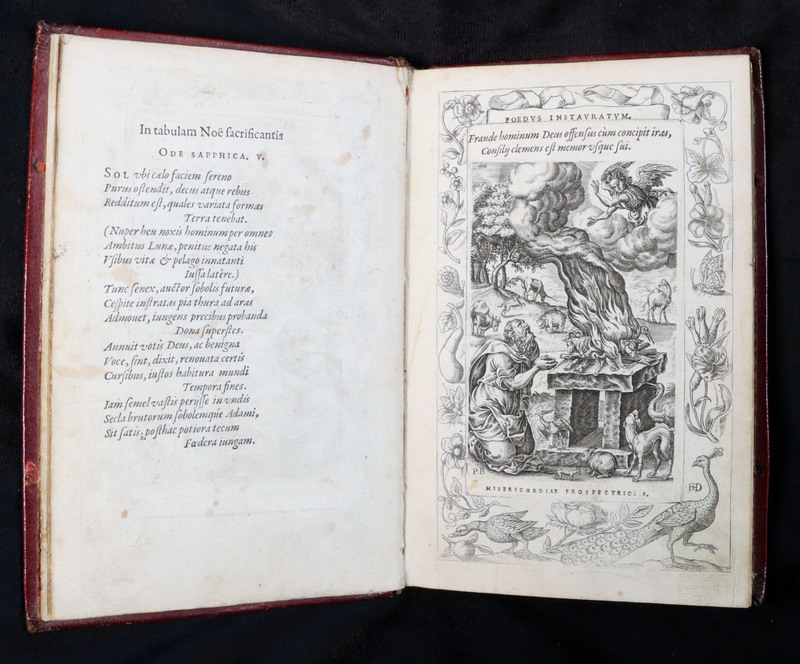 In tabulam Noë sacrificantis
ODE SAPPHICA. V.
SOL vbi cælo faciem sereno
Purus ostendit, decus atque rebus
Redditum est, quales variata formas
Terra tenebat.
(Nuper heu noxis hominum per omnes
Ambitus Lunæ, penitus negata his
Vsibus vitæ & pelago innatanti
Iussa latêre.)
Tunc senex, auctor sobolis futuræ,
Cespite instratas pia thura ad aras
Admouet, iungens precibus probanda
Dona superstes.
Annuit votis Deus, ac benigna
Voce, sint, dixit, renouata certis
Cursibus, iustos habitura mundi
Tempora fines.
Iam semel vastis perijsse in vndis
Secla brutorum sobolemque Adami,
Sit satis; posthac potiora tecum
Fœdera iungam.
FOEDVS INSTAVRATVM.
Fraude hominum Deus offensus cùm concipit iras,
Consilij clemens est memor vsque sui.
PB
MISERICORDIAE PROSPECTRICI. 5.
HSD